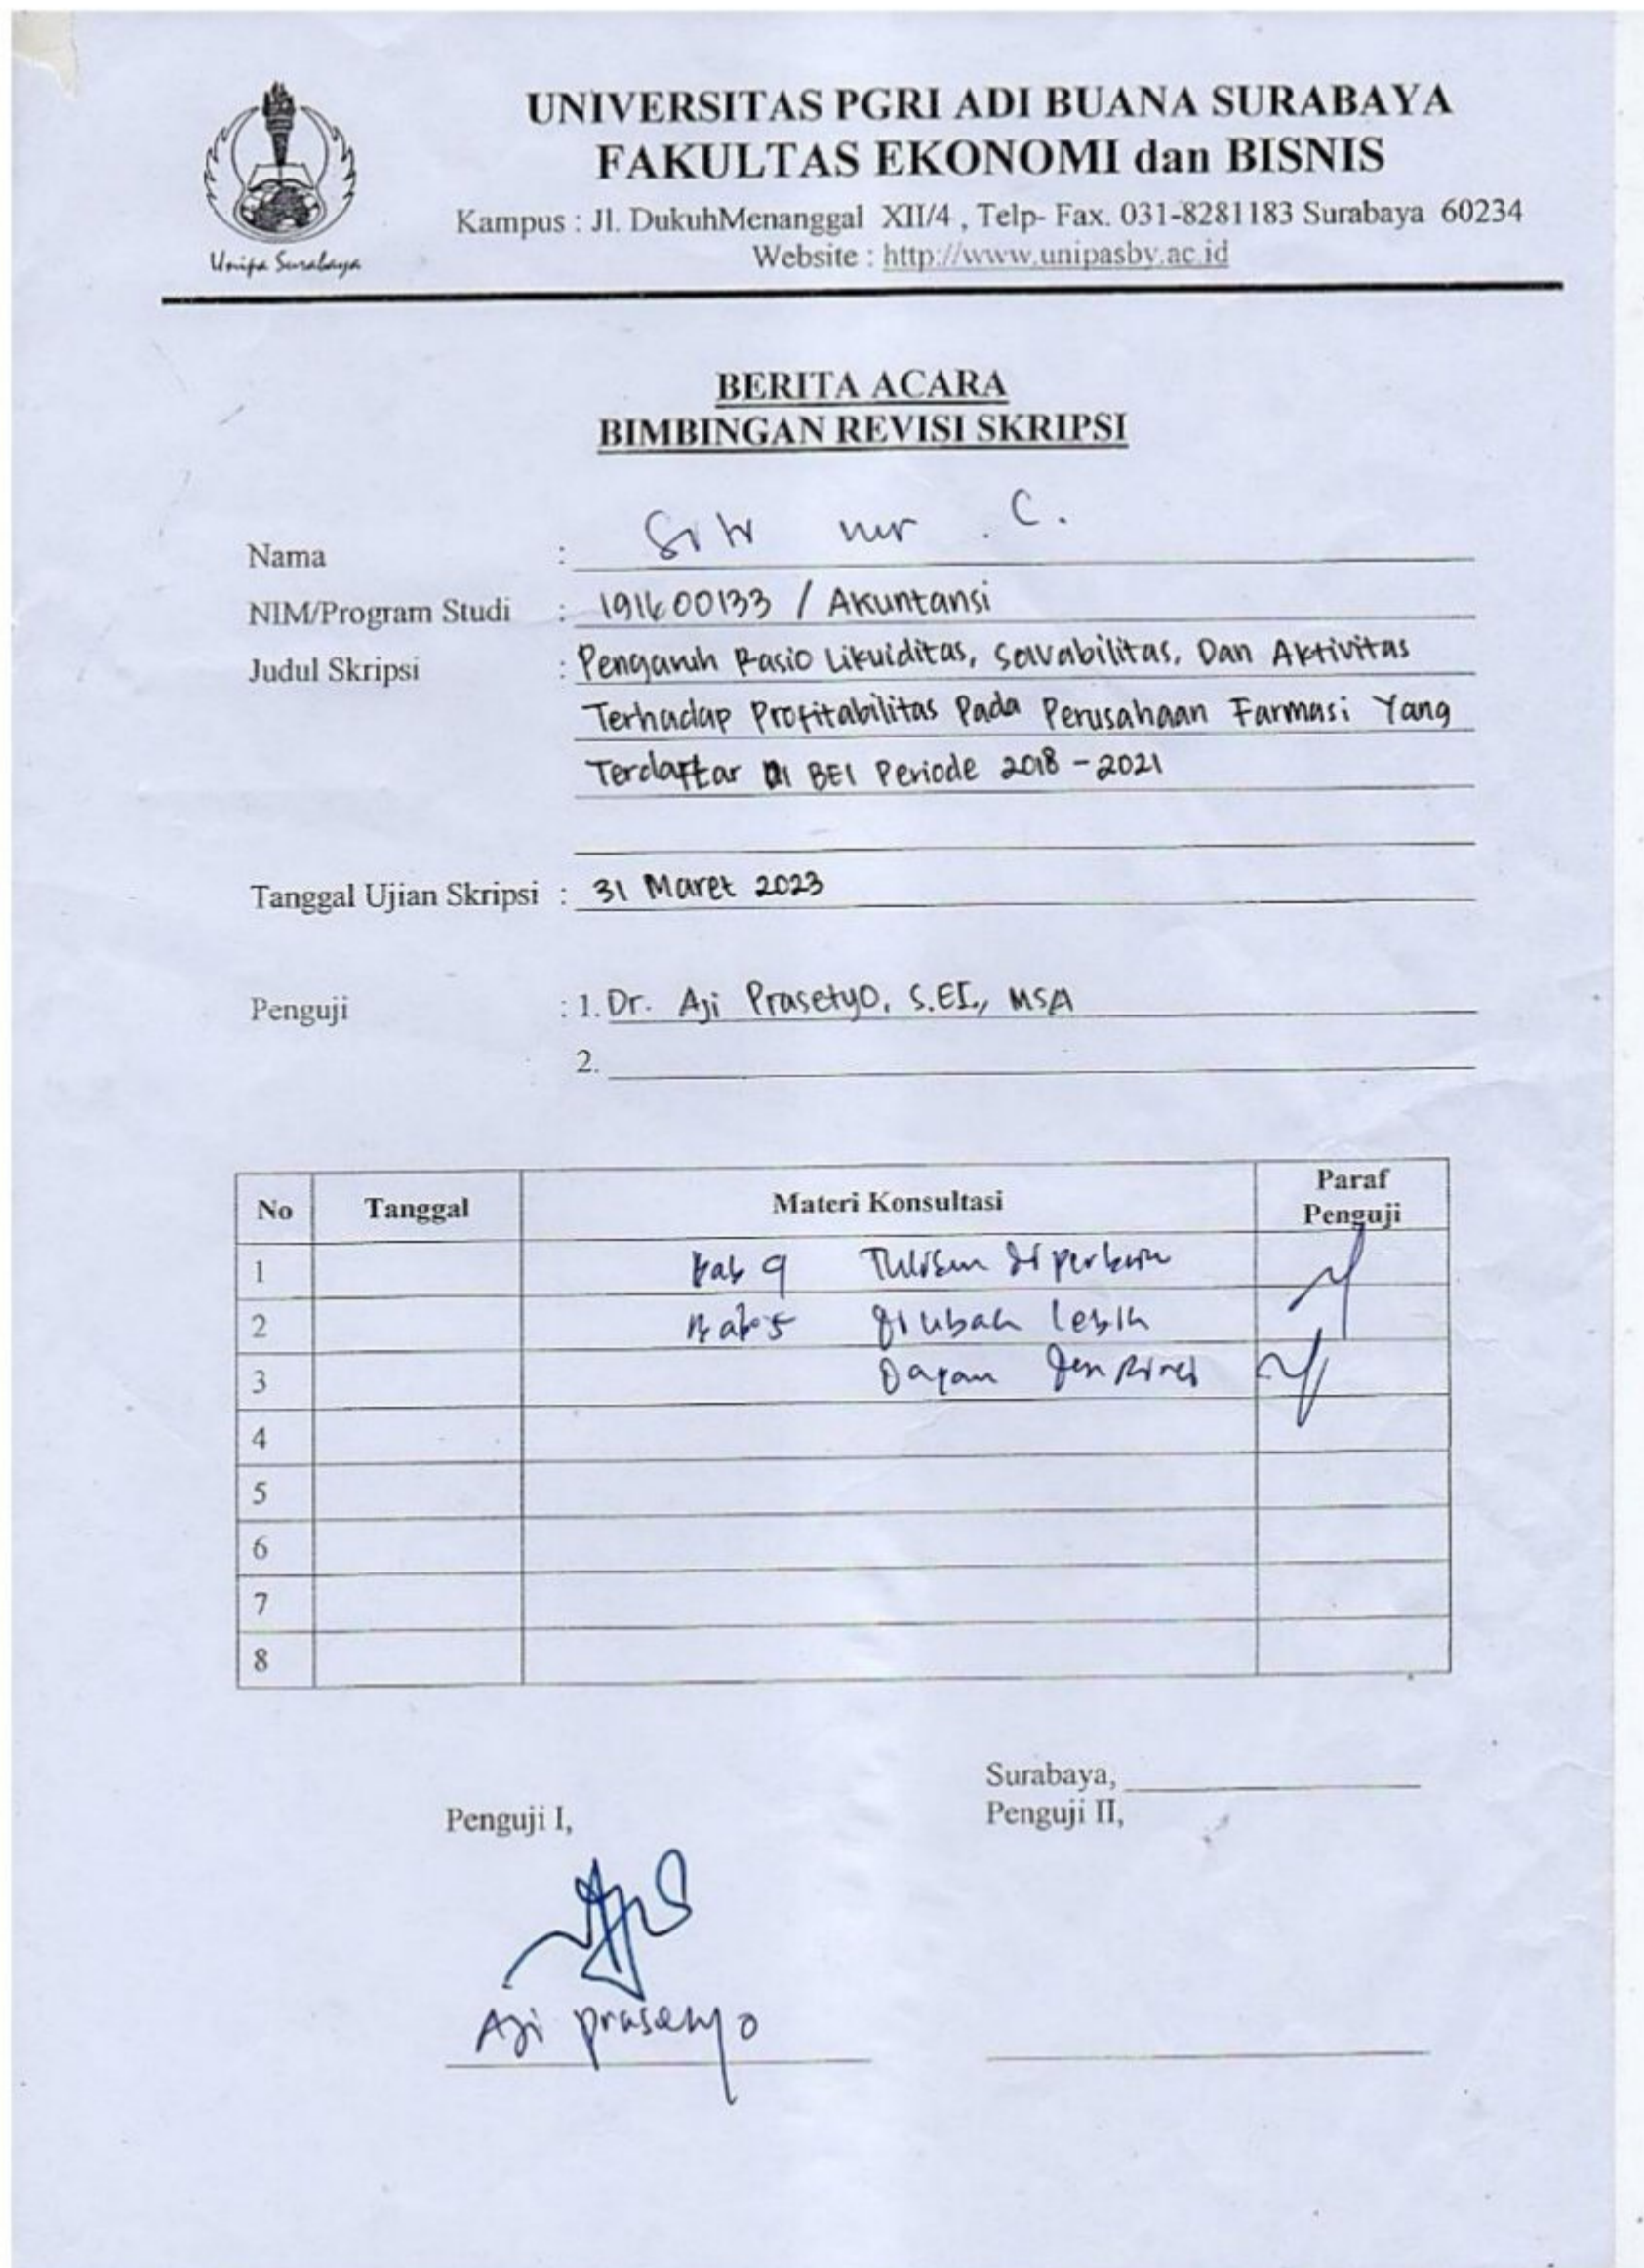 UNIVERSITAS PGRI ADI BUANA SURABAYA
FAKULTAS EKONOMI dan BISNIS
Kampus : Jl. DukuhMenanggal XII/4 , Telp- Fax. 031-8281183 Surabaya 60234
Website : http://www.unipasby.ac.id
Unipa Surabaya
BERITA ACARA
BIMBINGAN REVISI SKRIPSI
Nama : Siti nur C.
NIM/Program Studi : 191600133 / Akuntansi
Judul Skripsi : Pengaruh Rasio Likuiditas, Solvabilitas, Dan Aktivitas
Terhadap Profitabilitas Pada Perusahaan Farmasi Yang
Terdaftar Di BEI Periode 2018 - 2021
Tanggal Ujian Skripsi : 31 Maret 2023
Penguji : 1. Dr. Aji Prasetyo, S.EI., MSA
2.
No Tanggal Materi Konsultasi Paraf
Penguji
1 Bab 4 Tulisan di perbaiki
2 Bab 5 diubah lebih
3
4
5
6
7
8
Surabaya,
Penguji I, Penguji II,
Aji prasetyo